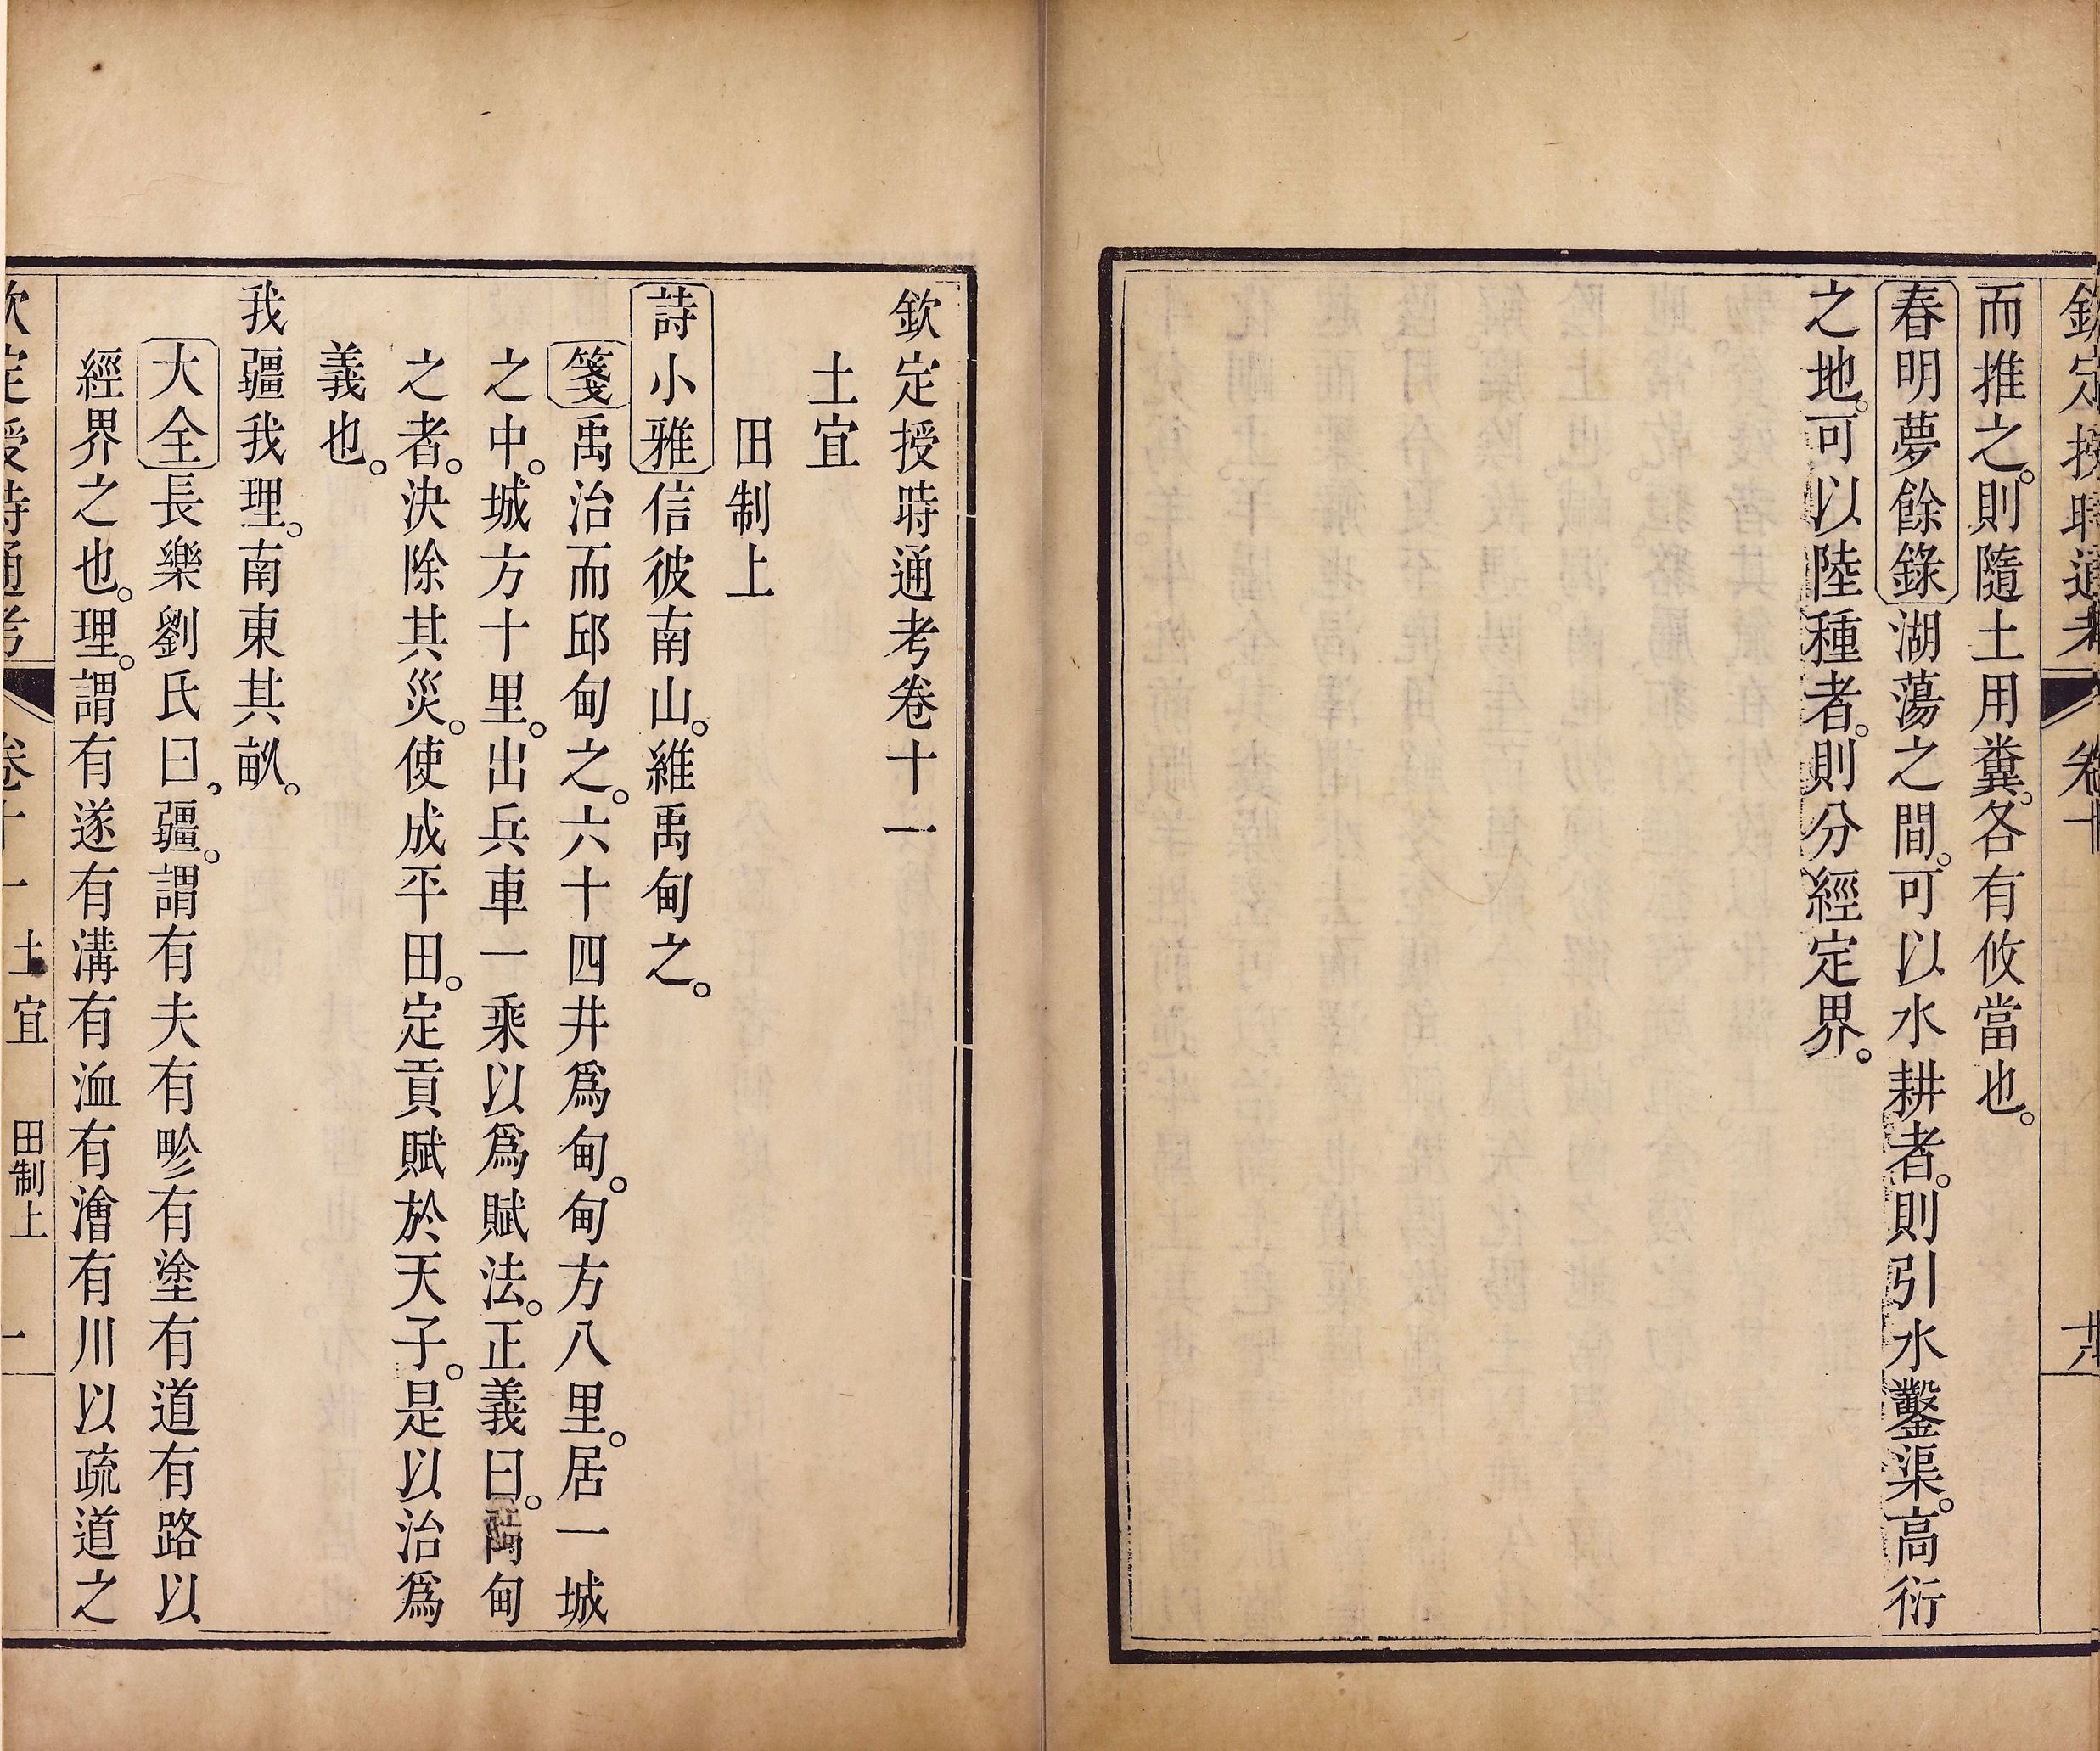 欽定授時通考 卷十
而推之。則隨土用糞。各有攸當也。
春明夢餘錄湖蕩之間。可以水耕者。則引水鑿渠。高衍
之地。可以陸種者。則分經定界。
欽定授時通考卷十一
土宜
田制上
詩小雅信彼南山。維禹甸之。
箋禹治而邱甸之。六十四井爲甸。甸方八里。居一城
之中。城方十里。出兵車一乘以爲賦法。正義曰。禹甸
之者。決除其災。使成平田。定貢賦於天子。是以治爲
義也。
我疆我理。南東其畝。
大全長樂劉氏曰。疆。謂有夫有畛有塗有道有路以
經界之也。理。謂有遂有溝有洫有澮有川以疏道之
欽定授時通考 卷十一 土宜 田制上 一